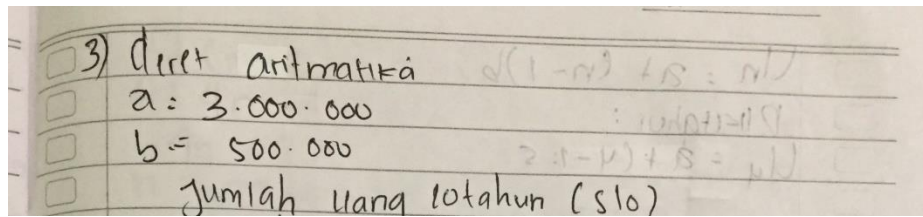 3) deret aritmatika
a = 3.000.000
b = 500.000
Jumlah uang 10tahun (S10)